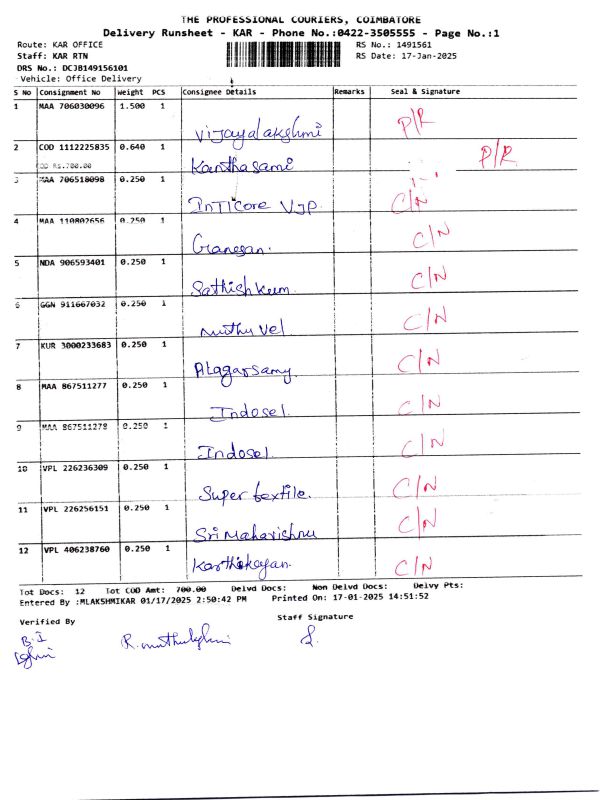 THE PROFESSIONAL COURIERS, COIMBATORE
Delivery Runsheet - KAR - Phone No.:0422-3505555 - Page No.:1
Route: KAR OFFICE RS No.: 1491561
Staff: KAR RTN RS Date: 17-Jan-2025
DRS No.: DCJB149156101
Vehicle: Office Delivery
S No Consignment No Weight PCS Consignee Details Remarks Seal & Signature
1 MAA 706030096 1.500 1
Vijayalakshmi P/R
2 COD 1112225835 0.640 1
COD RS.700.00 Kanthasami P/R
3 MAA 706518098 0.250 1
InTICore VJP C/N
4 MAA 110802656 0.250 1
Ganesan. C/N
5 NDA 906593401 0.250 1
Sathish Kum C/N
6 GGN 911667032 0.250 1
Muthu Vel C/N
7 KUR 3000233683 0.250 1
Alagarsamy C/N
8 MAA 867511277 0.250 1
Indosel. C/N
9 MAA 867511278 0.250 1
Indosel C/N
10 VPL 226236309 0.250 1
Super textile. C/N
11 VPL 226256151 0.250 1
Sri Mahavishnu C/N
12 VPL 406238760 0.250 1
Karthikeyan. C/N
Tot Docs: 12 Tot COD Amt: 700.00 Delvd Docs: Non Delvd Docs: Delvy Pts:
Entered By :MLAKSHMIKAR 01/17/2025 2:50:42 PM Printed On: 17-01-2025 14:51:52
Verified By Staff Signature
B.I